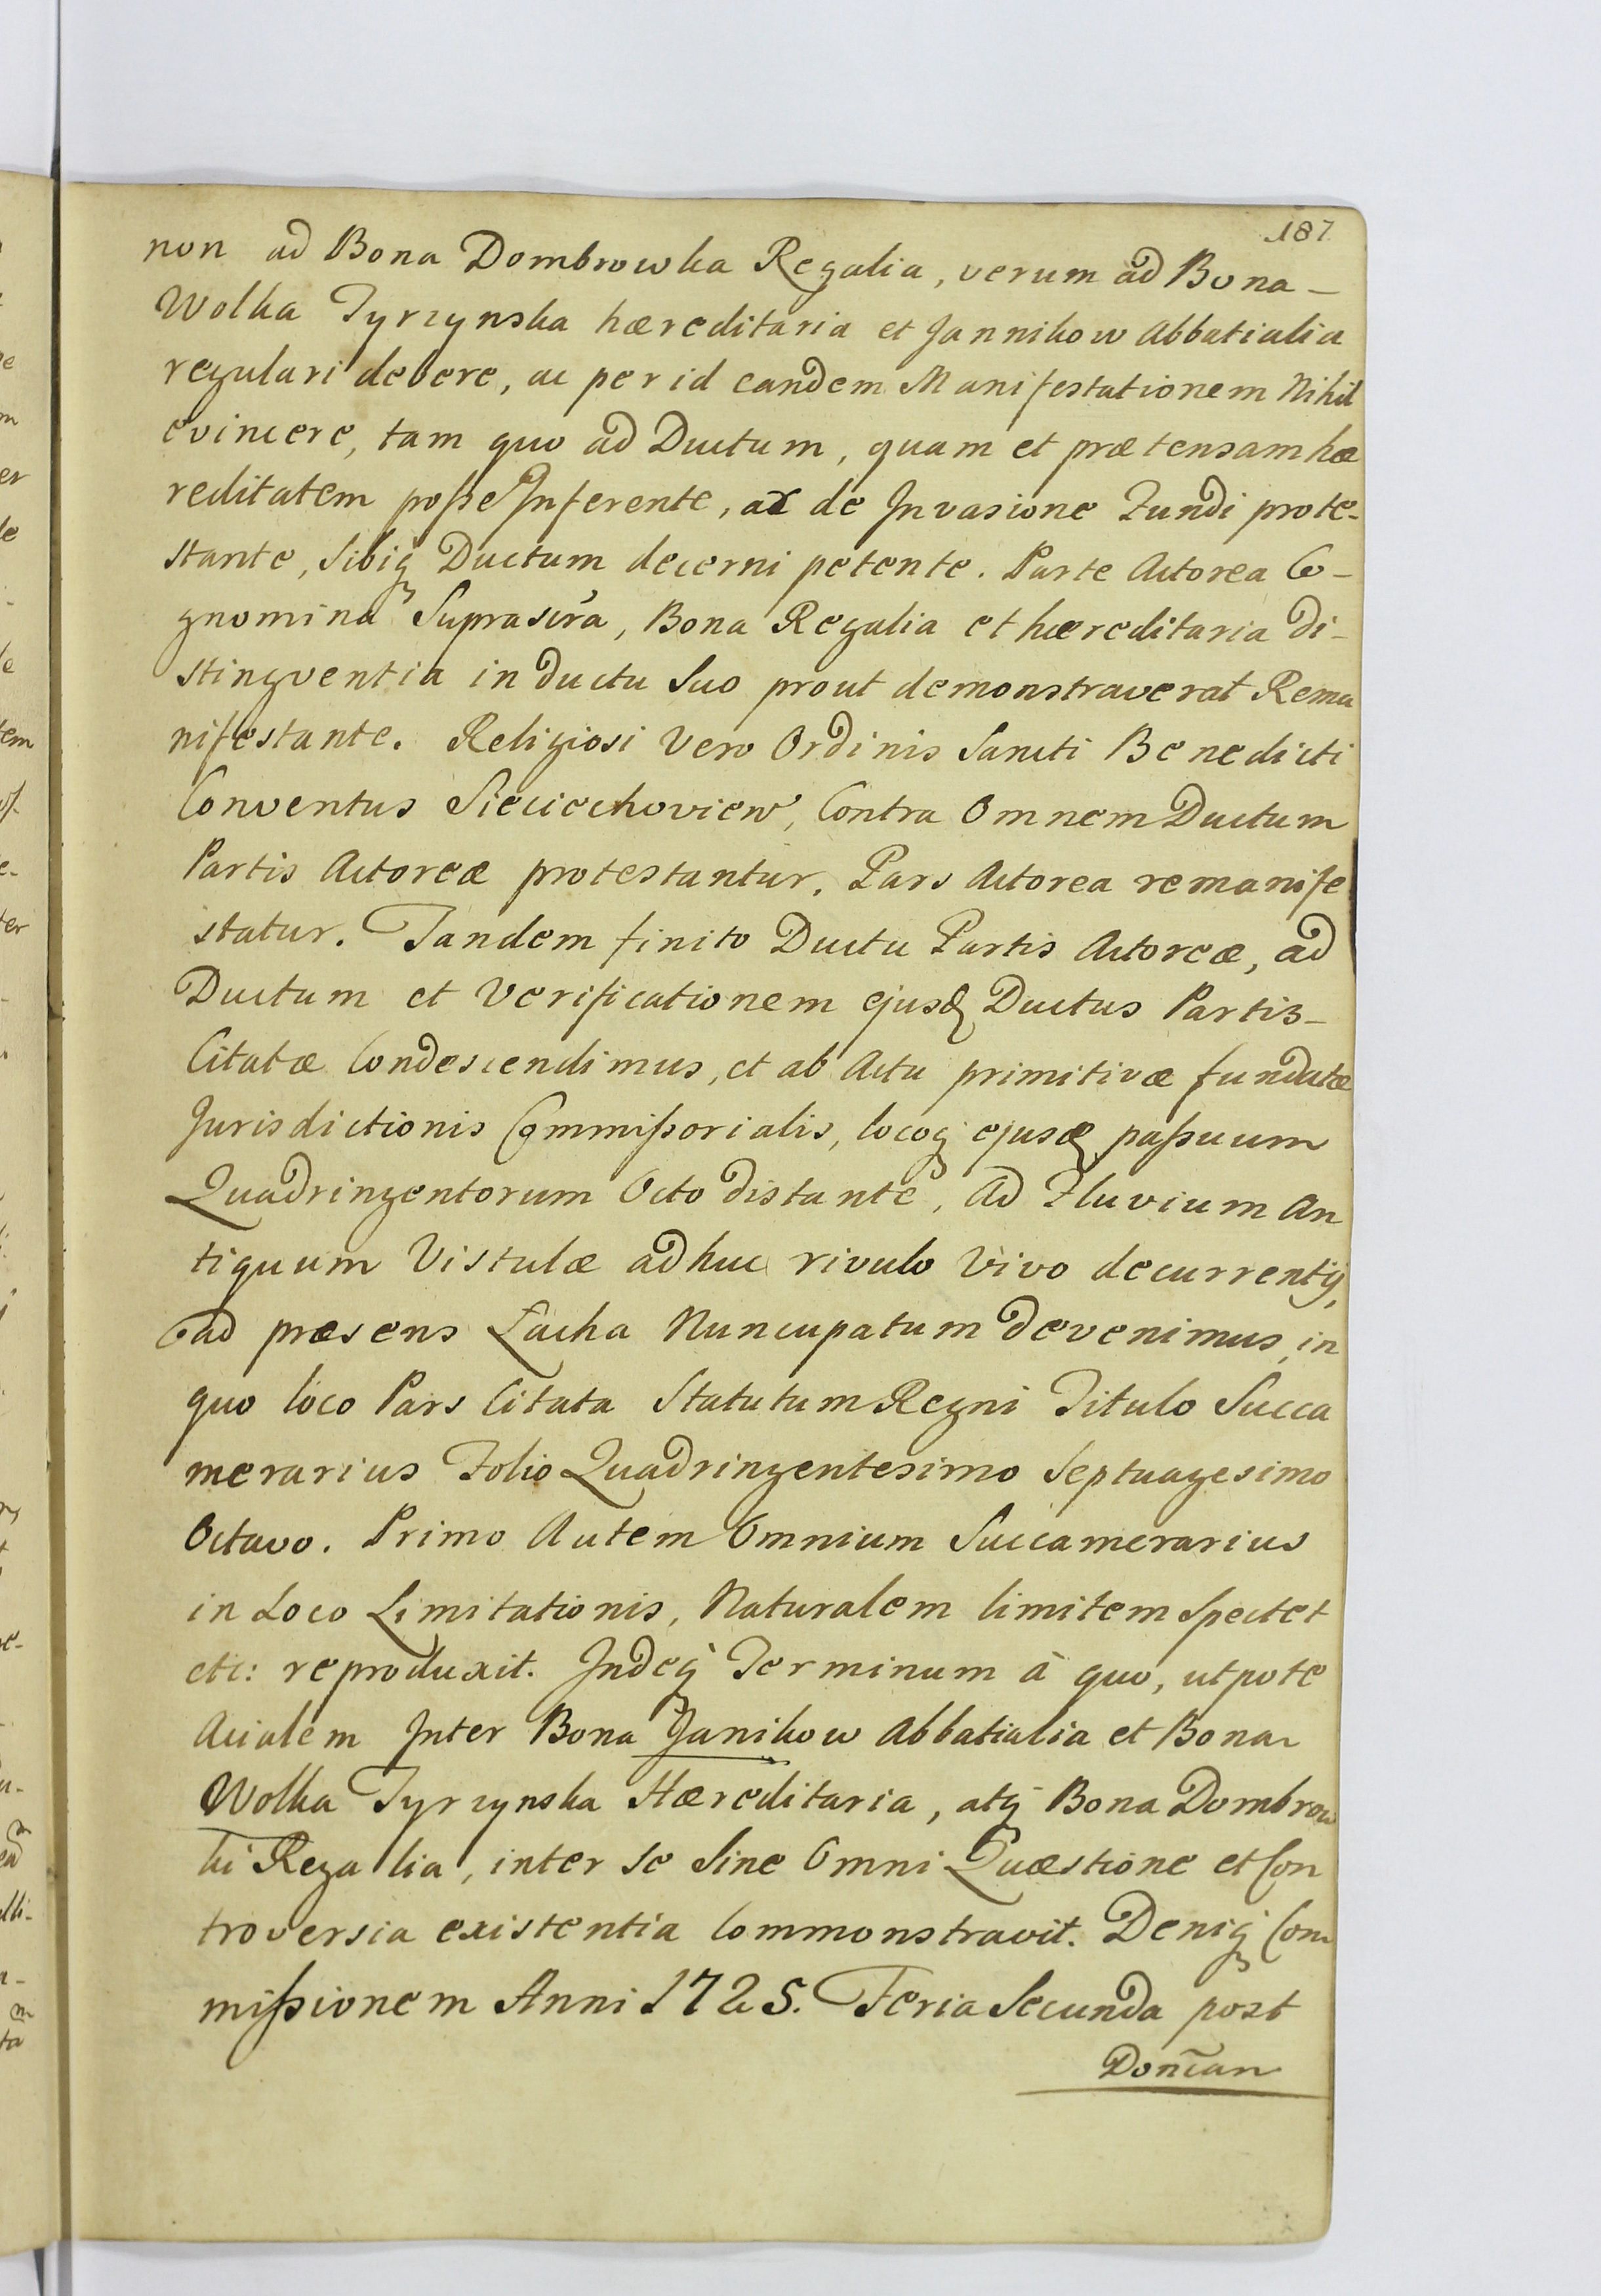 187
non ad Bona Dombrowka Regalia, verum ad Bona –
Wolka Tyrzynska hæreditaria et Jannikow Abbatialia
regulari debere, ac per id eandem Manifestationem Nihil
evincere, tam quo ad Ductum, quam et prætensam hæ
reditatem poße Inferente, ac de Invasione Fundi prote-
stante, Sibiq Ductum decerni petente. Parte Actorea Co-
gnomina Suprascra, Bona Regalia et hæreditaria di-
stingventia in ductu Suo prout demonstraverat Rema
nifestante. Religiosi Vero Ordinis Sancti Benedicti
Conventus Sieciechovien, Contra Omnem Ductum
Partis Actoreæ protestantur, Pars Actorea remanife
statur. Tandem finito Ductu Partis Actoreæ, ad
Ductum et Verificationem ejusd Ductus Partis –
Citatæ Condescendimus, et ab Actu primitivæ fundatæ
Jurisdictionis Commißorialis, locoq ejusd paßuum
Quadringentorum Octo distante, Ad Fluvium An
tiquum Vistulæ adhuc rivulo Vivo decurrentij,
ad præsens Łacha Nuncupatum devenimus, in
quo loco Pars Citata Statutum Regni Titulo Succa
merarius Folio Quadringentesimo Septuagesimo
Octavo. Primo Autem Omnium Succamerarius
in Loco Limitationis, Naturalem limitem Spectet
etc: reproduxit. Indeq Terminum à quo, utpote
Acialem Inter Bona Janikow Abbatialia et Bona
Wolka Tyrzynska Hæreditaria, atq Bona Dombrow
ki Regalia, inter se Sine Omni Quæstione et Con
troversia existentia Commonstravit. Deniq Com
mißionem Anni 1725. Feria Secunda post
Domcan